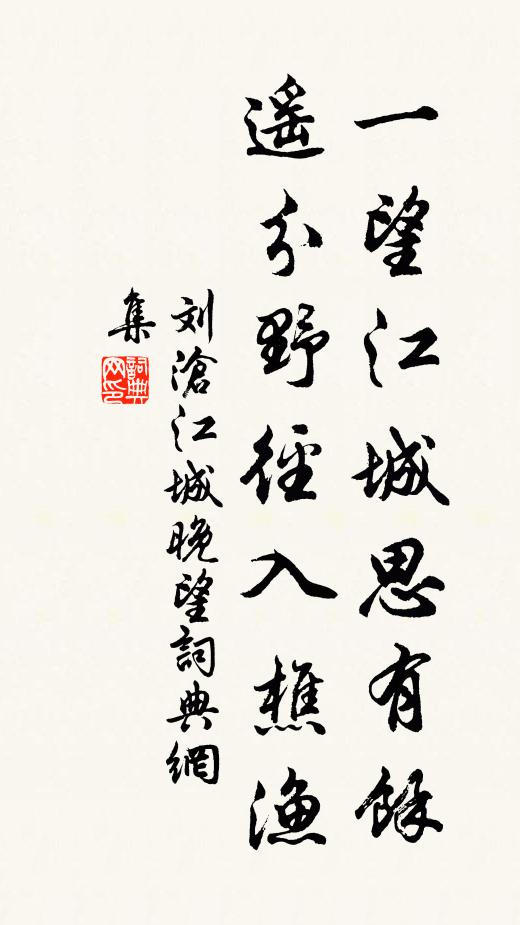 一望江城思有餘
遥分野徑入樵漁
刘滄江城晚望詞典網
集
詞典网印